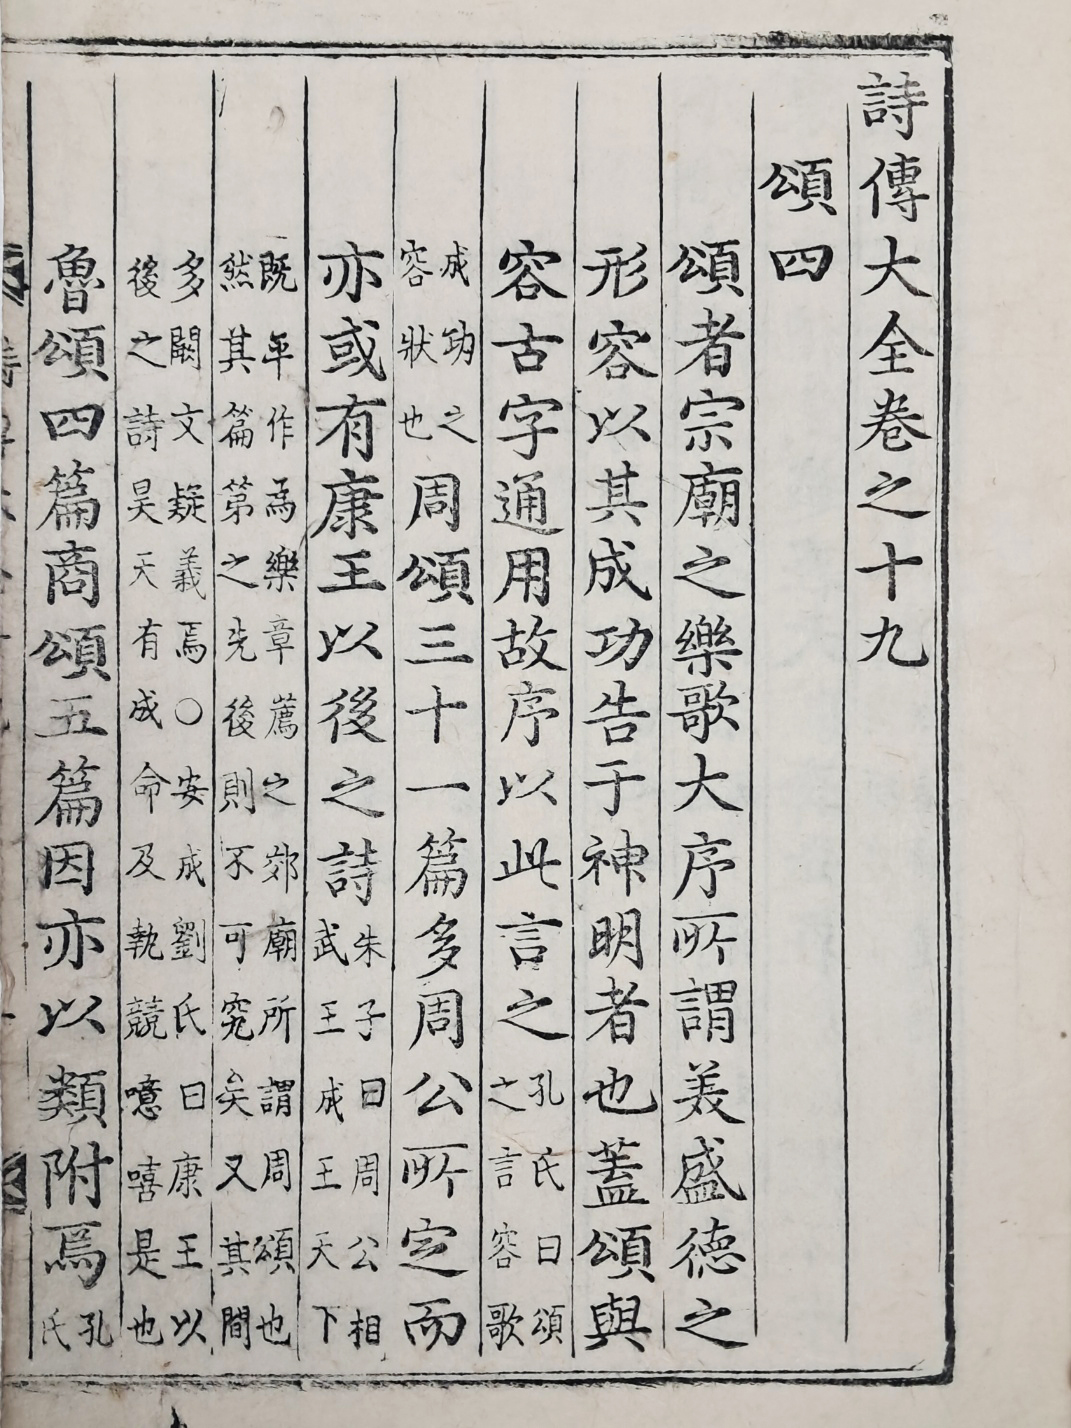 詩傳大全卷之十九
頌四
頌者宗廟之樂歌大序所謂美盛德之
形容以其成功告于神明者也蓋頌與
容古字通用故序以此言之孔氏曰頌之言容歌
成功之容狀也周頌三十一篇多周公所定而
亦或有康王以後之詩朱子曰周公相武王成王天下
既平作爲樂章薦之郊廟所謂周頌也
然其篇第之先後則不可究矣又其間
多闕文疑義焉○安成劉氏曰康王以
後之詩昊天有成命及執競噫嘻是也
魯頌四篇商頌五篇因亦以類附焉孔氏